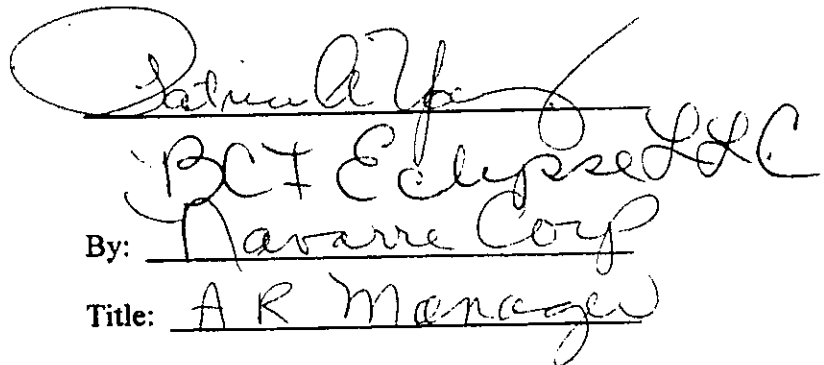 Patricia A
BCI Eclipse LLC
By: Navarre Corp
Title: A R Manager